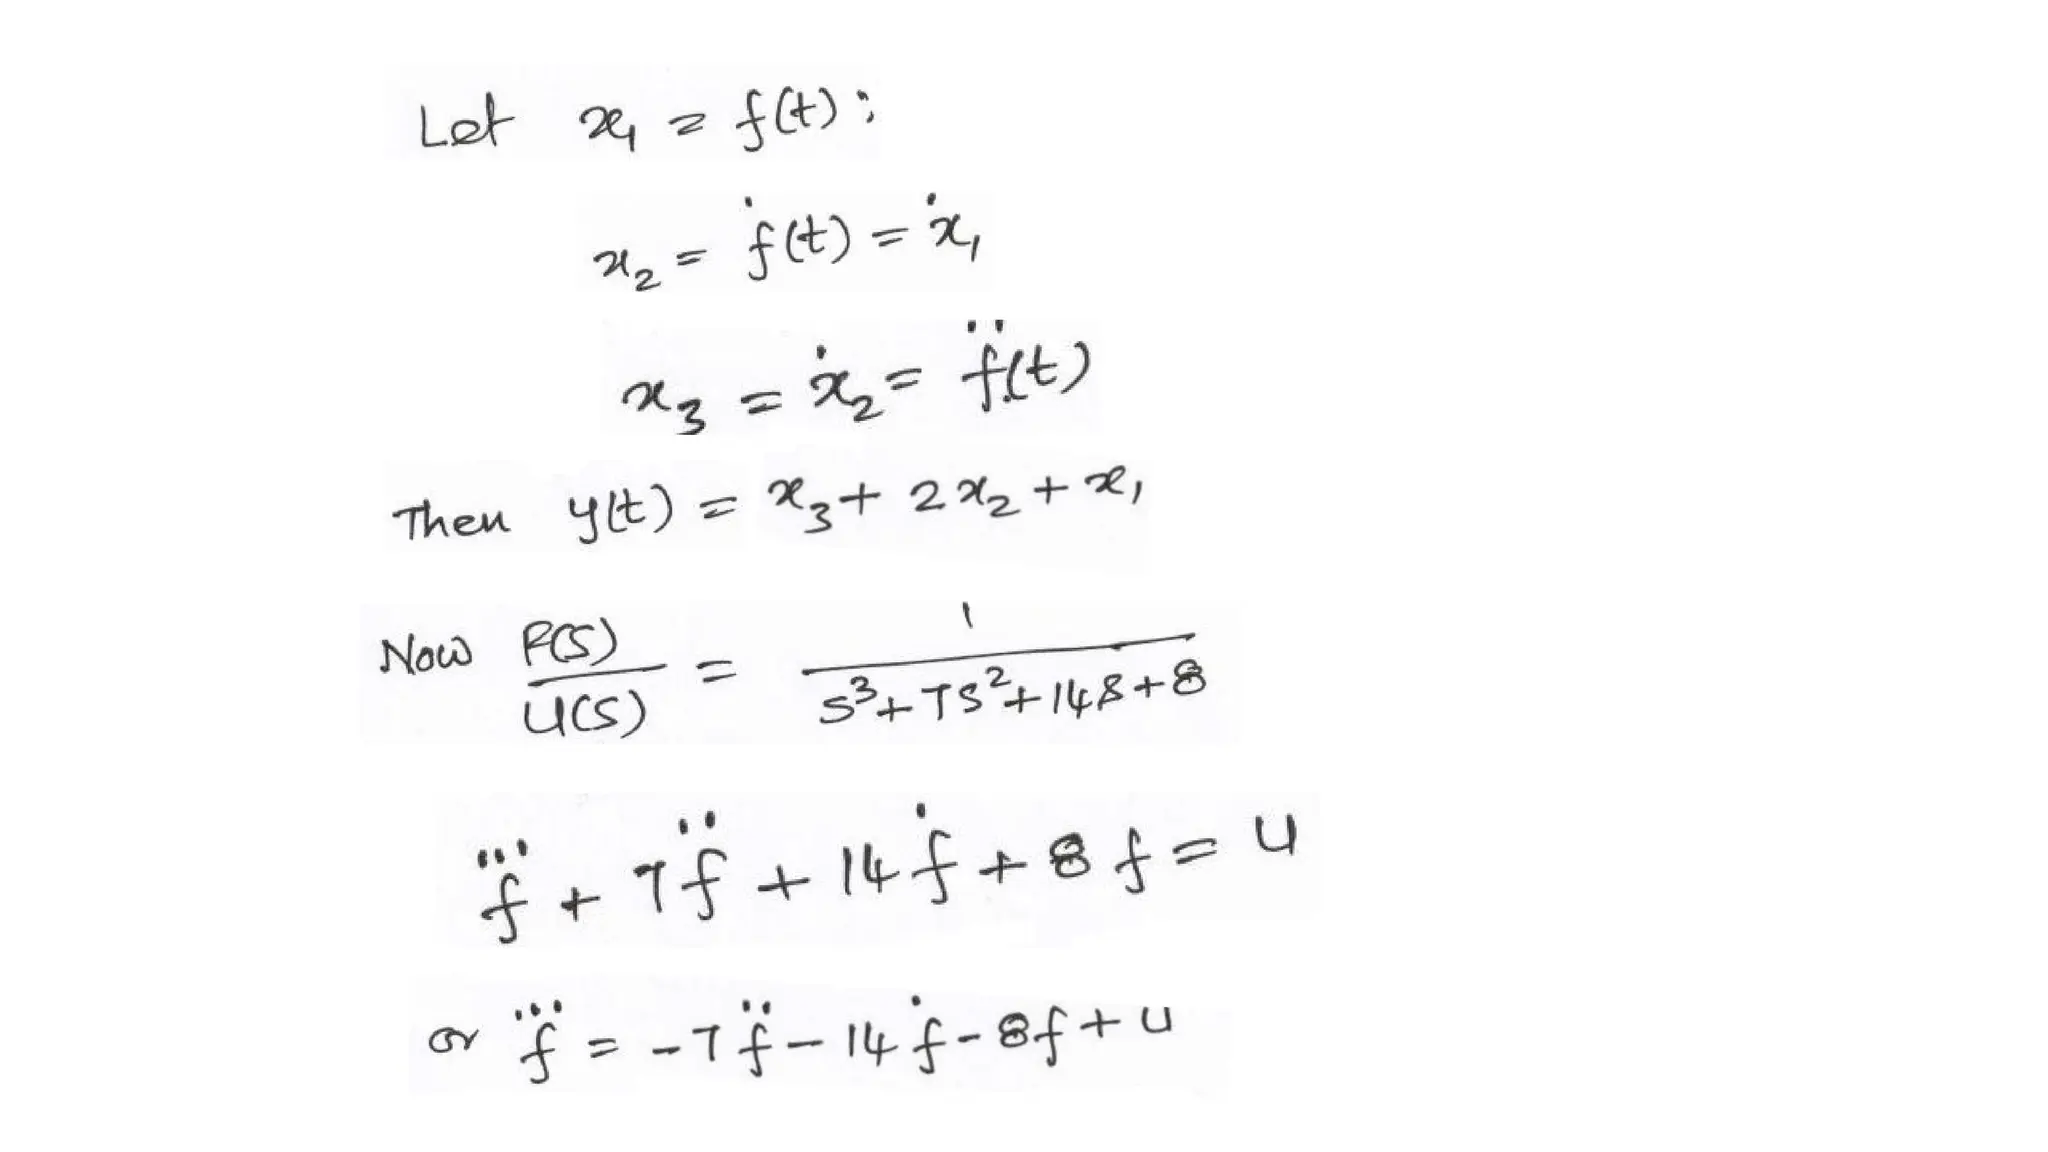 Let x₁ = f(t);
x₂ = ḟ(t) = ẋ₁
x₃ = ẋ₂ = f̈(t)
Then y(t) = x₃ + 2x₂ + x₁
Now F(S)/U(S) = 1/(S³ + 7S² + 14S + 8)
f⃛ + 7f̈ + 14ḟ + 8f = u
or f⃛ = -7f̈ - 14ḟ - 8f + u